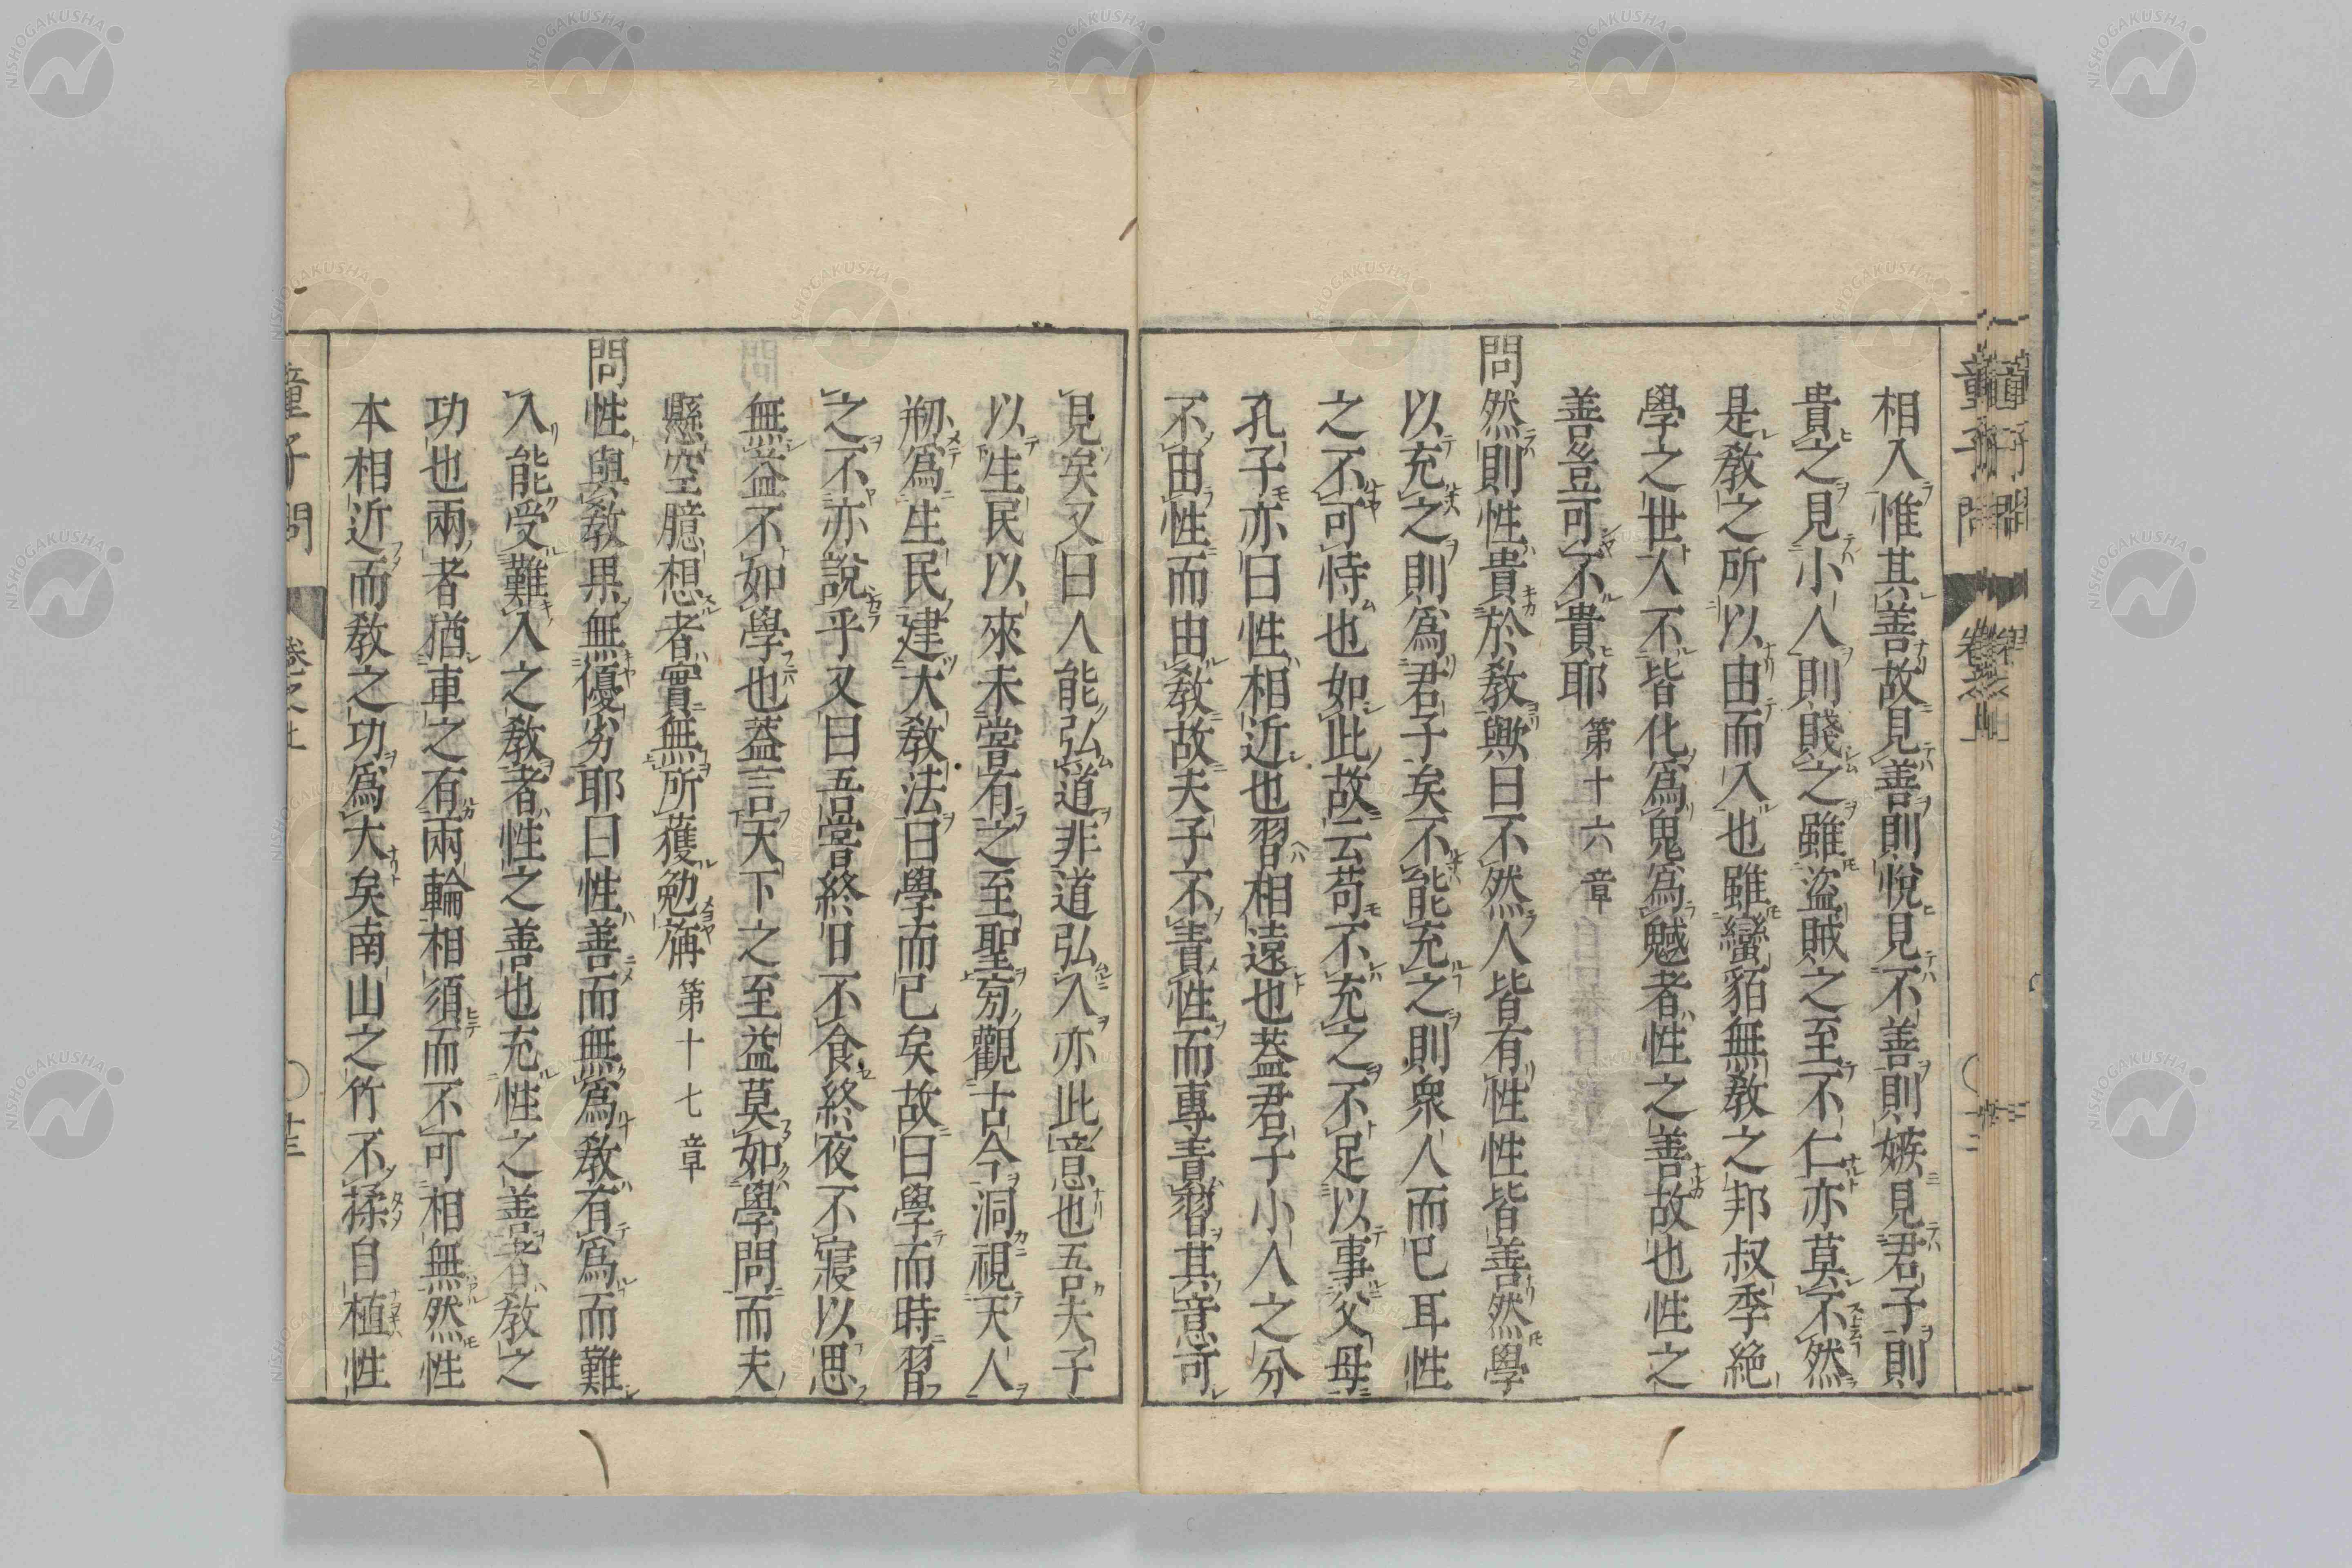 相入惟其善故見善則悅見不善則嫉見君子則
貴之見小人則賤之雖盜賊之至不仁亦莫不然
是敎之所以由而入也雖蠻貊無敎之邦叔季絶
學之世人不皆化爲鬼爲魊者性之善故也性之
善豈可不貴耶 第十六章
問然則性貴於敎歟曰不然人皆有性性皆善然學
以充之則爲君子矣不能充之則衆人而已耳性
之不可恃也如此故云苟不充之不足以事父母
孔子亦曰性相近也習相遠也蓋君子小人之分
不由性而由敎故夫子不責性而專責習其意可
見矣又曰人能弘道非道弘人亦此意也吾夫子
以生民以來未嘗有之至聖旁觀古今洞視天人
剏爲生民建大敎法曰學而已矣故曰學而時習
之不亦說乎又曰吾嘗終日不食終夜不寢以思
無益不如學也蓋言天下之至益莫如學問而夫
懸空臆想者實無所獲勉旃 第十七章
問性與敎果無優劣耶曰性善而無爲敎有爲而難
入能受難入之敎者性之善也充性之善者敎之
功也兩者猶車之有兩輪相須而不可相無然性
本相近而敎之功爲大矣南山之竹不揉自植性
童子問 卷之上 十三
NISHOGAKUSHA